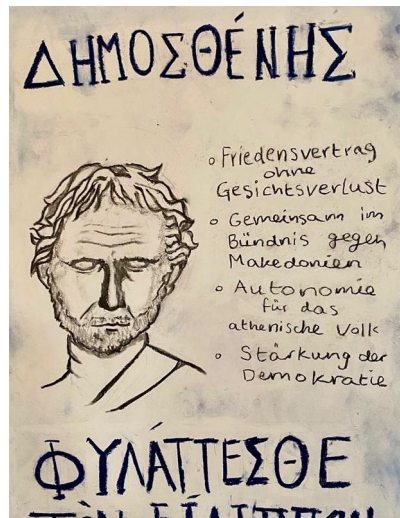 ΔΗΜΟΣΘΈΝΗΣ
◦ Friedensvertrag
ohne
Gesichtsverlust
◦ Gemeinsam im
Bündnis gegen
Makedonien
◦ Autonomie
für das
athenische Volk
◦ Stärkung der
Demokratie
ΦΥΛΆΤΤΕΣΘΕ